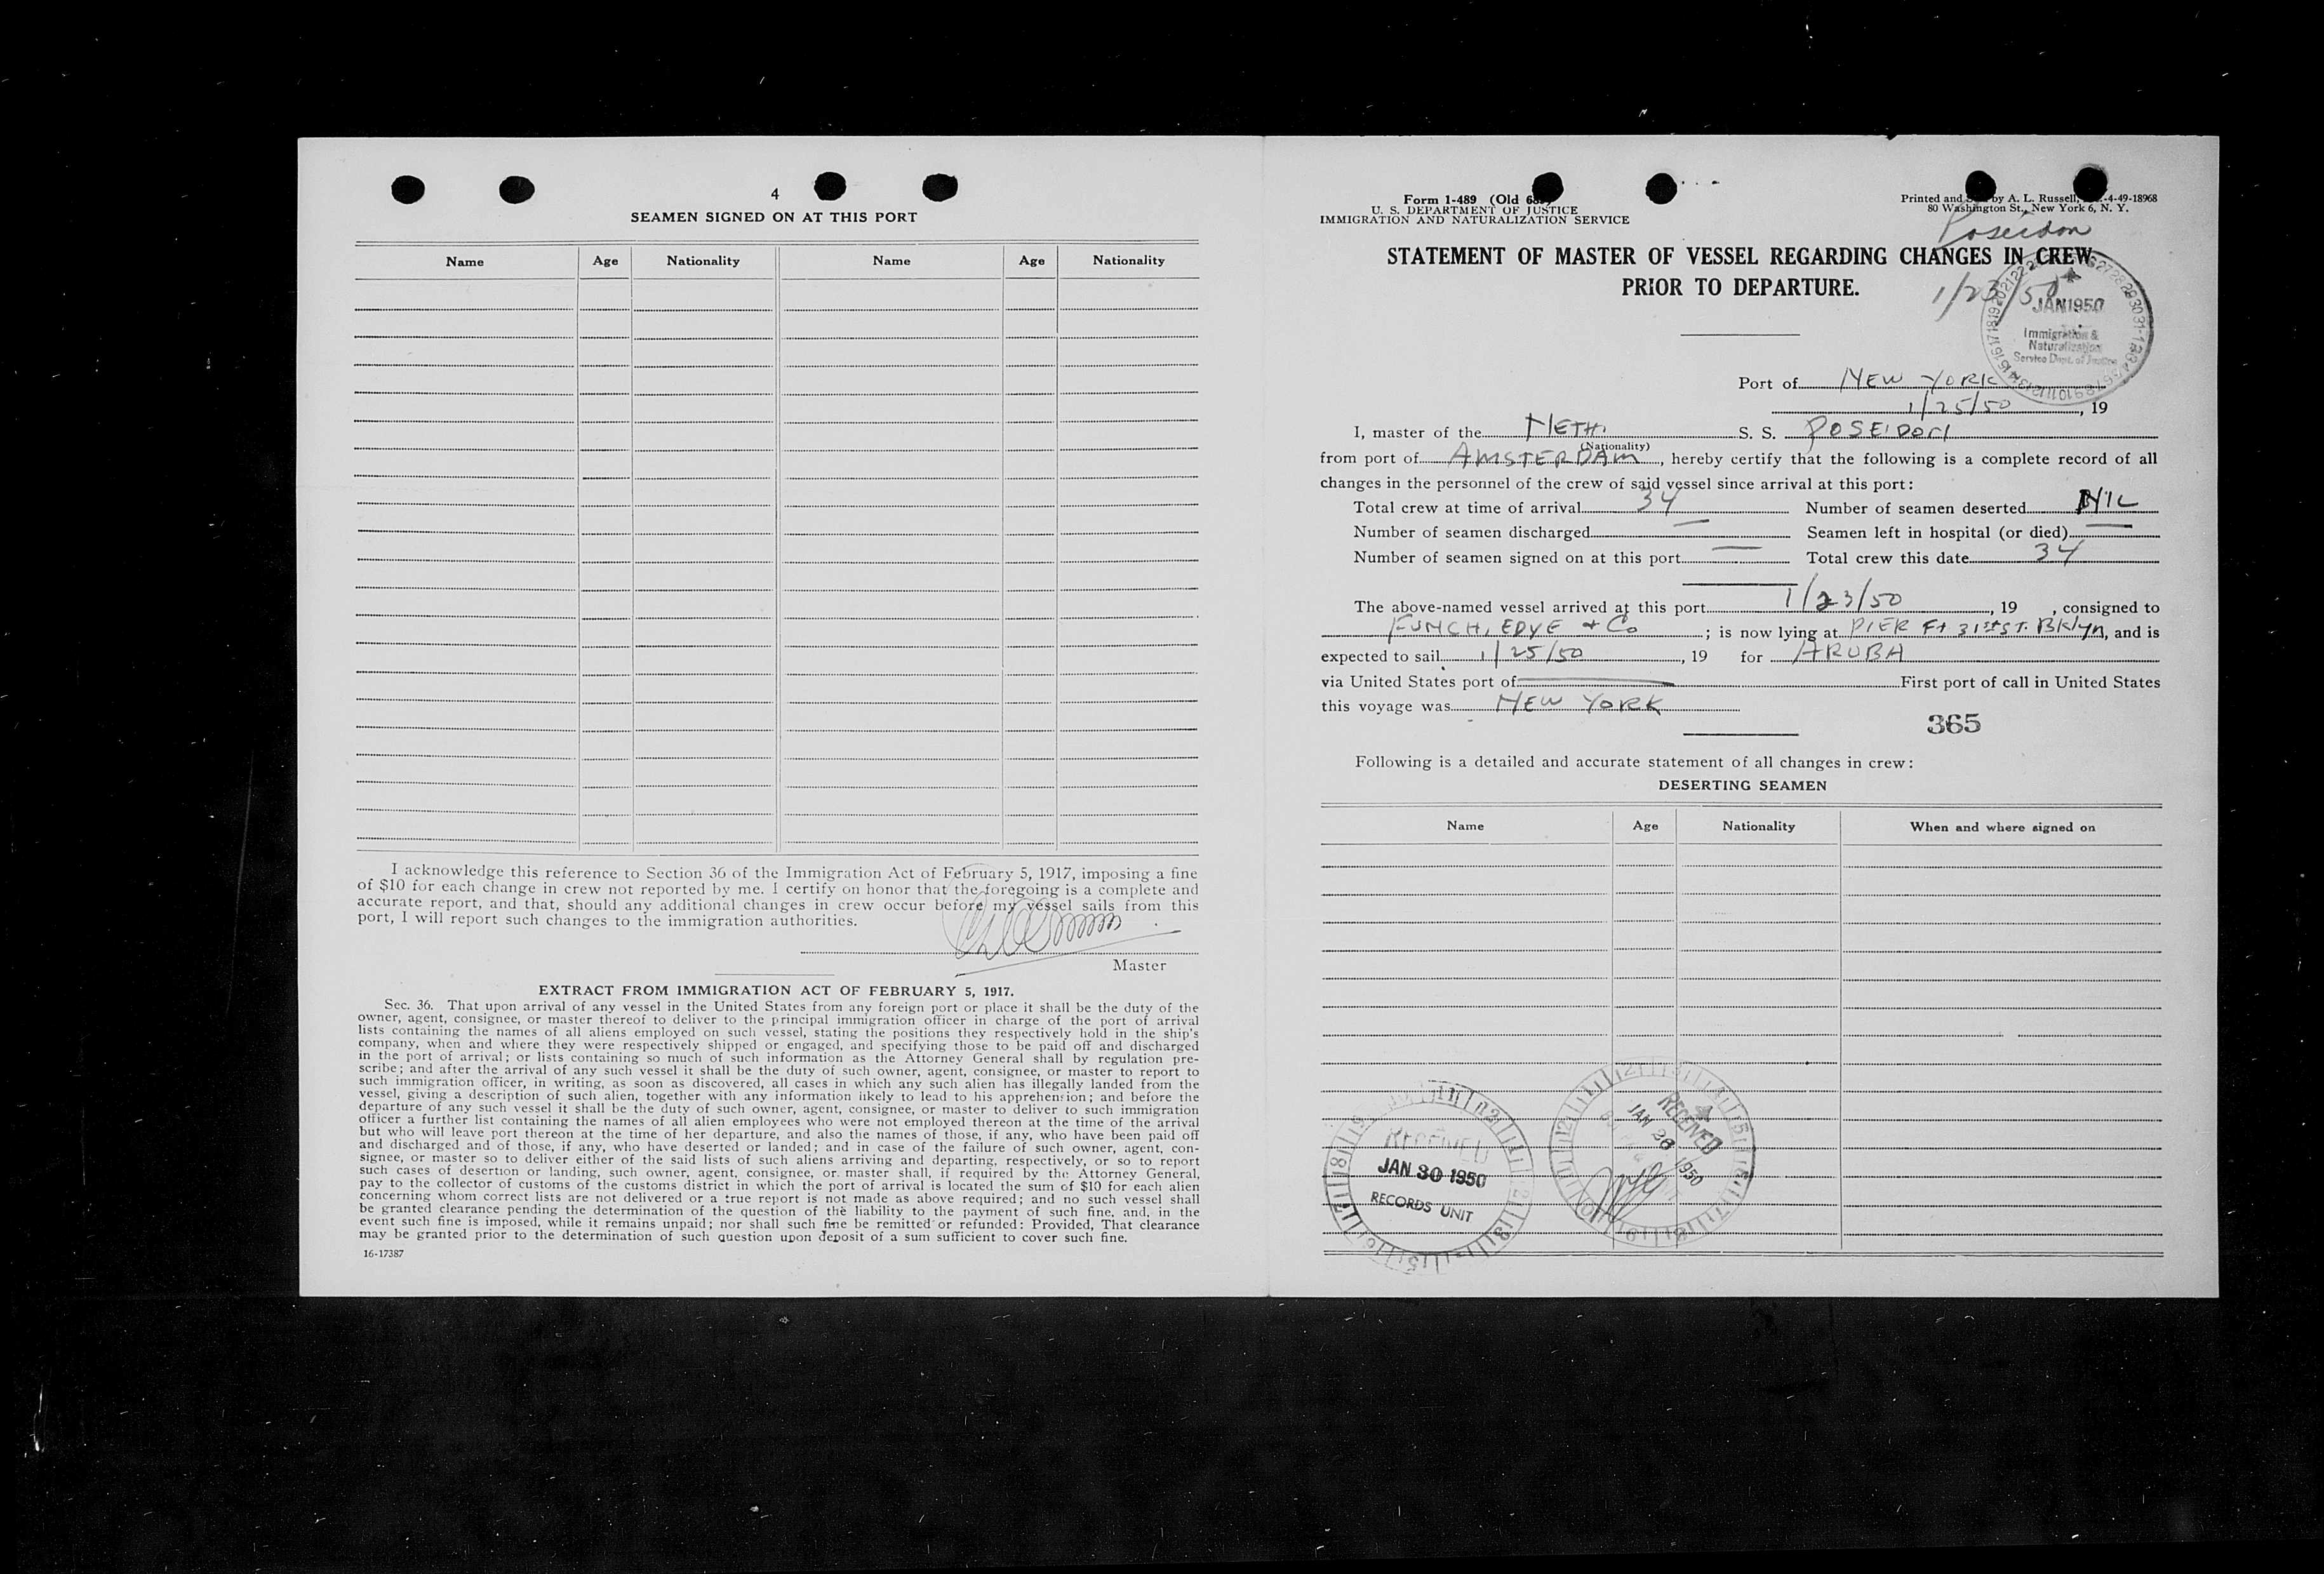 4
SEAMEN SIGNED ON AT THIS PORT
Name Age Nationality Name Age Nationality
I acknowledge this reference to Section 36 of the Immigration Act of February 5, 1917, imposing a fine
of $10 for each change in crew not reported by me. I certify on honor that the foregoing is a complete and
accurate report, and that, should any additional changes in crew occur before my vessel sails from this
port, I will report such changes to the immigration authorities.
Master
EXTRACT FROM IMMIGRATION ACT OF FEBRUARY 5, 1917.
Sec. 36. That upon arrival of any vessel in the United States from any foreign port or place it shall be the duty of the
owner, agent, consignee, or master thereof to deliver to the principal immigration officer in charge of the port of arrival
lists containing the names of all aliens employed on such vessel, stating the positions they respectively hold in the ship's
company, when and where they were respectively shipped or engaged, and specifying those to be paid off and discharged
in the port of arrival; or lists containing so much of such information as the Attorney General shall by regulation pre-
scribe; and after the arrival of any such vessel it shall be the duty of such owner, agent, consignee, or master to report to
such immigration officer, in writing, as soon as discovered, all cases in which any such alien has illegally landed from the
vessel, giving a description of such alien, together with any information likely to lead to his apprehension; and before the
departure of any such vessel it shall be the duty of such owner, agent, consignee, or master to deliver to such immigration
officer a further list containing the names of all alien employees who were not employed thereon at the time of the arrival
but who will leave port thereon at the time of her departure, and also the names of those, if any, who have been paid off
and discharged and of those, if any, who have deserted or landed; and in case of the failure of such owner, agent, con-
signee, or master so to deliver either of the said lists of such aliens arriving and departing, respectively, or so to report
such cases of desertion or landing, such owner, agent, consignee, or master shall, if required by the Attorney General,
pay to the collector of customs of the customs district in which the port of arrival is located the sum of $10 for each alien
concerning whom correct lists are not delivered or a true report is not made as above required; and no such vessel shall
be granted clearance pending the determination of the question of the liability to the payment of such fine, and, in the
event such fine is imposed, while it remains unpaid; nor shall such fine be remitted or refunded: Provided, That clearance
may be granted prior to the determination of such question upon deposit of a sum sufficient to cover such fine.
16-17387
Form 1-489 (Old
U. S. DEPARTMENT OF JUSTICE
IMMIGRATION AND NATURALIZATION SERVICE
Printed and by A. L. Russell, 4-49-18968
80 Washington St., New York 6, N. Y.
Poseidon
STATEMENT OF MASTER OF VESSEL REGARDING CHANGES IN CREW
PRIOR TO DEPARTURE.
1/23/50
JAN 1950
Immigration &
Naturalization
Service Dept. of Justice
Port of NEW YORK
1/25/50, 19
I, master of the NETH. S. S. POSEIDON
(Nationality)
from port of AMSTERDAM, hereby certify that the following is a complete record of all
changes in the personnel of the crew of said vessel since arrival at this port:
Total crew at time of arrival 34 Number of seamen deserted NIL
Number of seamen discharged — Seamen left in hospital (or died) —
Number of seamen signed on at this port — Total crew this date 34
The above-named vessel arrived at this port 1/23/50, 19 , consigned to
FUNCH, EDYE + Co ; is now lying at PIER Ft 31st ST. BKlyn, and is
expected to sail 1/25/50, 19 for ARUBA
via United States port of — First port of call in United States
this voyage was NEW YORK
365
Following is a detailed and accurate statement of all changes in crew:
DESERTING SEAMEN
Name Age Nationality When and where signed on
RECEIVED
JAN 30 1950
RECORDS UNIT
RECEIVED
JAN 26 1950